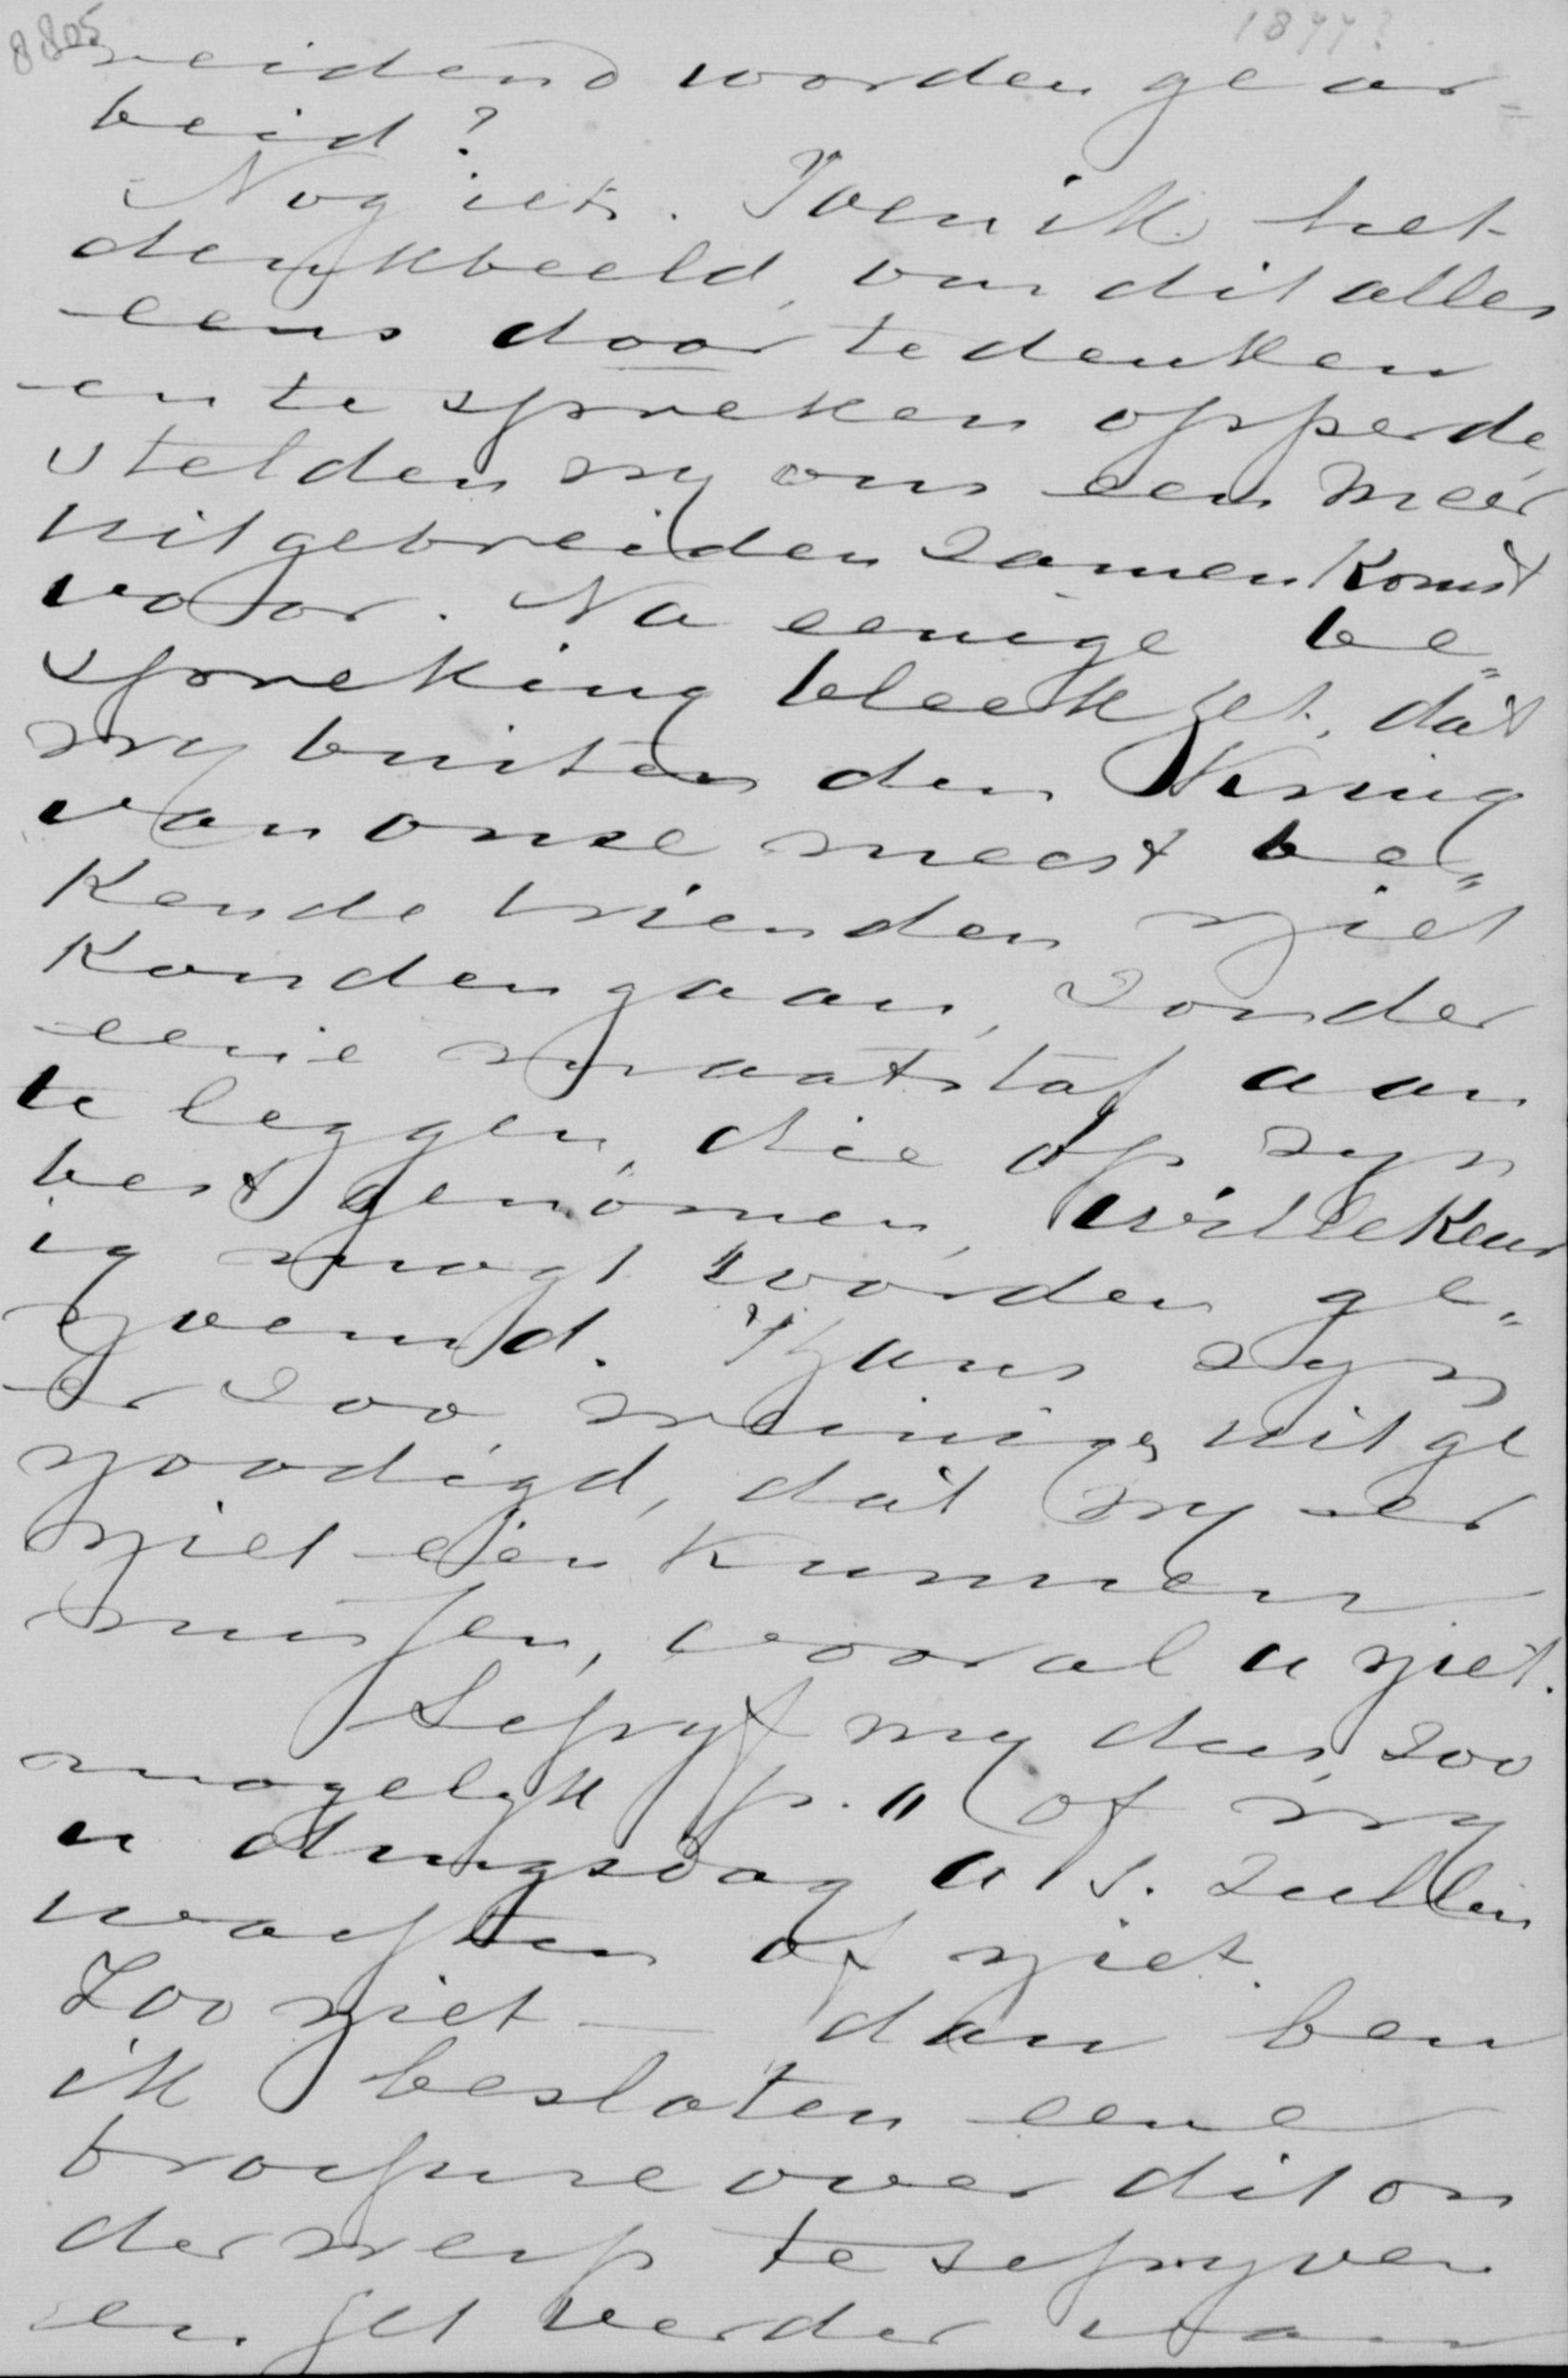 8805
1877?
reidend worden gear=
beid?
Nog iets. Toen ik het
denkbeeld, om dit alles
eens door te denken
en te spreken opperde,
stelden wy ons een meer
uitgebreiden zamenkomst
voor. Na eenige be„
spreking bleek het, dat
wy buiten den kring
van onze meest be„
kende vrienden niet
konden gaan, zonder
eene maatstaf aan
te leggen, die op zyn
best genomen, willekeur
ig mogt worden ge„
noemd. Thans zyn
er zoo weinige uitge
noodigd, dat wy er
niet één kunnen
missen, vooral u niet.
Schryf my dus, zoo
mogelyk p. " of wy
u dingsdag a. s. zullen
wachten of niet.
Zoo niet — dan ben
ik besloten eene
brochure over dit on
derwerp te schryven
en het verder van